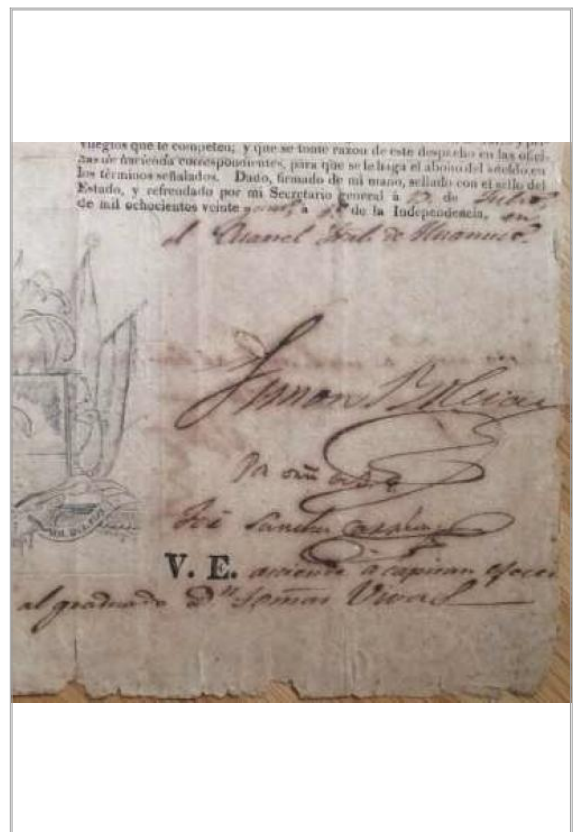 vilegios que le competen; y que se tome razon de este despacho en las ofici-
nas de hacienda correspondientes, para que se le haga el abono del sueldo en
los términos señalados. Dado, firmado de mi mano, sellado con el sello del
Estado, y refrendado por mi Secretario general á de Julio
de mil ochocientos veinte á de la Independencia, en
el Cuartel Jral. de Huanuco.
Simon Bolivar
Por orden de S. E.
José Sanchez Carrion
V. E. asciende a capitan efecti
al graduado Dn. Tomas Vivas